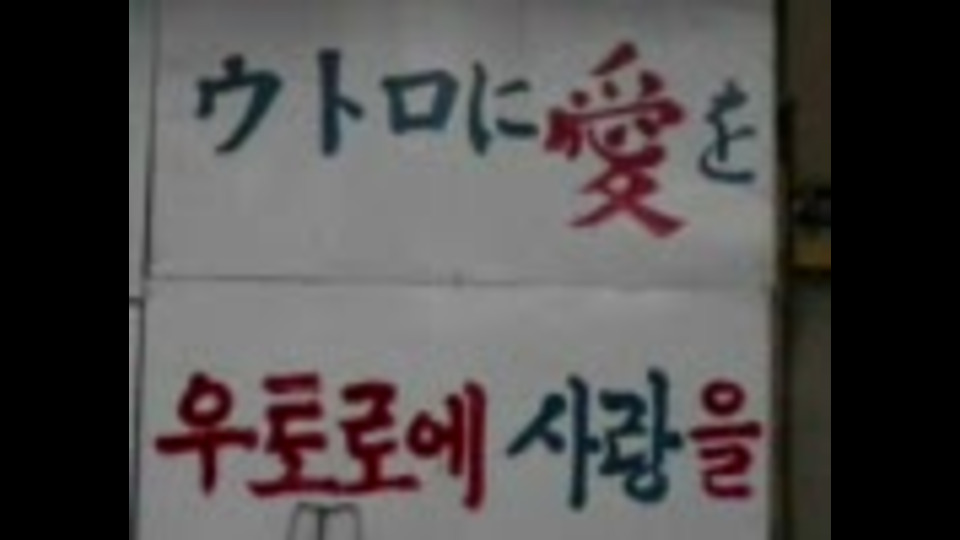 ウトロに愛を
우토로에 사랑을